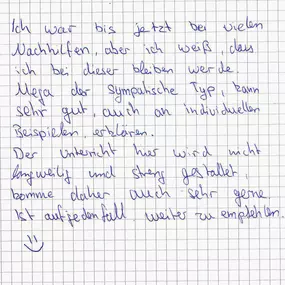 Ich war bis jetzt bei vielen
Nachhilfen, aber ich weiß, dass
ich bei dieser bleiben werde.
Mega der sympatische Typ, kann
sehr gut, auch an individuellen
Beispielen, erklären.
Der Unterricht hier wird nicht
langweilig und streng gestaltet,
komme daher auch sehr gerne.
Ist aufjedenfall weiter zu empfehlen.